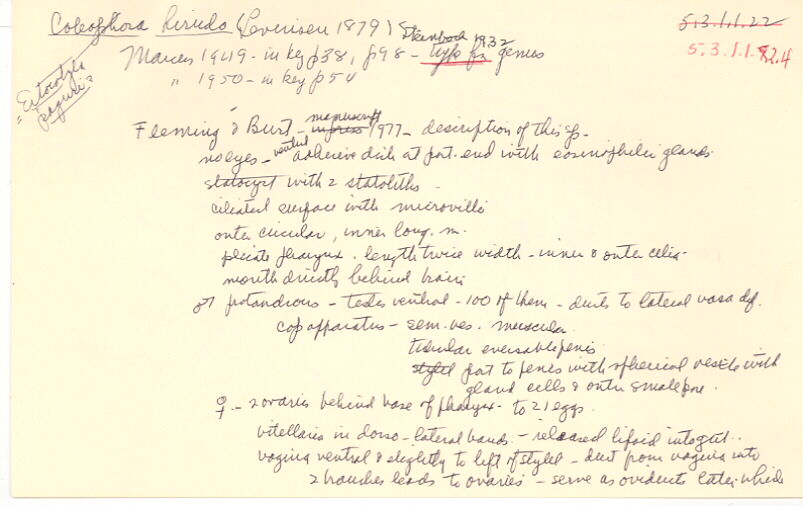 Coleophora hirudo (Levensen 1879) Steinbock 1932
5.3.1.1.22
5.3.1.1.82.4
Marcus 1949 - in key p38, p98 - type for genus
" 1950 - in key p54
"Ectocotyla
paguri"?
Fleming & Burt - in press manuscript 1977 - description of this sp.
no eyes - ventral adhesive disk at post. end with eosinophilic glands
statocyst with 2 statoliths -
ciliated surface with microvilli
outer circular, inner long. m.
plicate pharynx. length twice width - inner & outer cilia
mouth directly behind brain
♂ protandrous - testes ventral - 100 of them - ducts to lateral vasa def.
cop apparatus - sem. ves. muscular
tubular eversable penis
stylet post to penis with spherical vesicle with
gland cells & outer small pore.
♀ - 2 ovaries behind base of pharynx - to 21 eggs.
vitellaria in dorso-lateral bands - released lipoid into gut.
vagina ventral & slightly to left of stylet - duct from vagina into
2 branches leads to ovaries - serve as oviducts later which